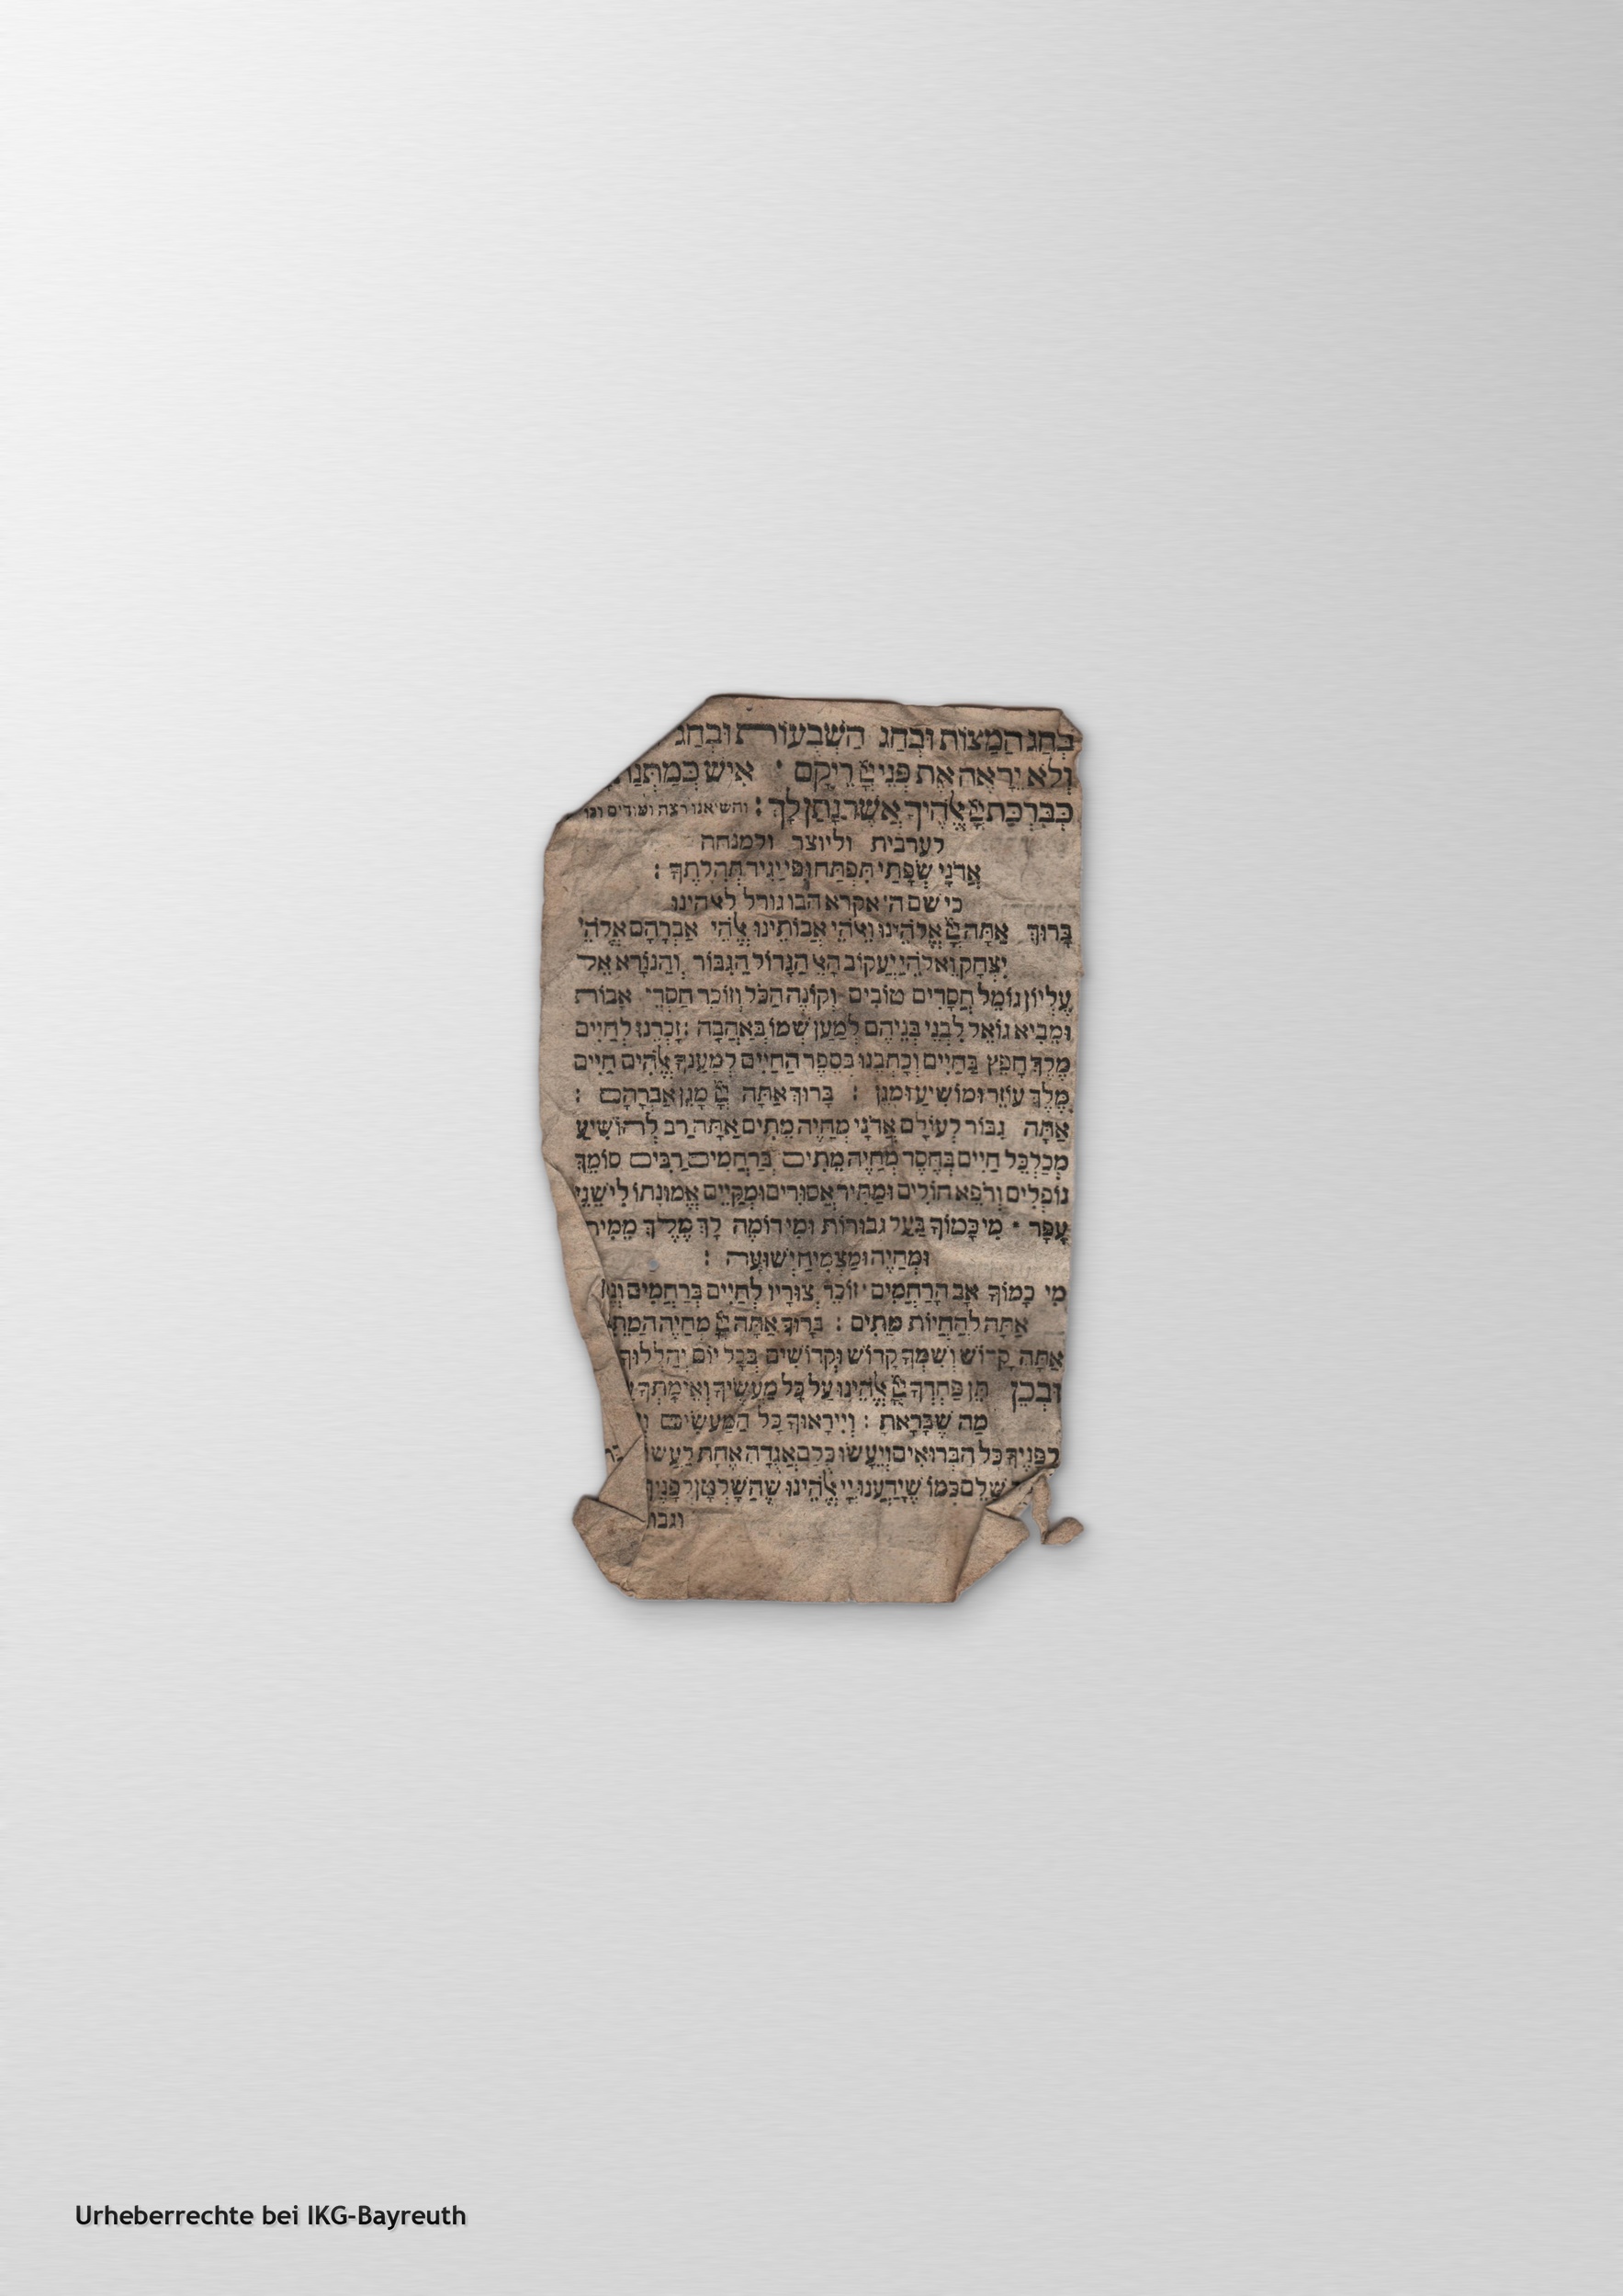 בְּחַג הַמַּצּוֹת וּבְחַג הַשָּׁבֻעוֹת וּבְחַג
וְלֹא יֵרָאֶה אֶת פְּנֵי יְיָ רֵיקָם : אִישׁ כְּמַתְּנַת
כְּבִרְכַּת יְיָ אֱלֹהֶיךָ אֲשֶׁר נָתַן לָךְ : והשיאנו רצה ומודים וכו
לערבית וליוצר ולמנחה
אֲדֹנָי שְׂפָתַי תִּפְתַּח וּפִי יַגִּיד תְּהִלָּתֶךָ :
כי שם ה' אקרא הבו גודל לאלהינו
בָּרוּךְ אַתָּה יְיָ אֱלֹהֵינוּ וֵאלֹהֵי אֲבוֹתֵינוּ אֱלֹהֵי אַבְרָהָם אֱלֹהֵי
יִצְחָק וֵאלֹהֵי יַעֲקוֹב הָאֵל הַגָּדוֹל הַגִּבּוֹר וְהַנּוֹרָא אֵל
עֶלְיוֹן גּוֹמֵל חֲסָדִים טוֹבִים וְקוֹנֵה הַכֹּל וְזוֹכֵר חַסְדֵי אָבוֹת
וּמֵבִיא גוֹאֵל לִבְנֵי בְנֵיהֶם לְמַעַן שְׁמוֹ בְּאַהֲבָה : זָכְרֵנוּ לְחַיִּים
מֶלֶךְ חָפֵץ בַּחַיִּים וְכָתְבֵנוּ בְּסֵפֶר הַחַיִּים לְמַעַנְךָ אֱלֹהִים חַיִּים
מֶלֶךְ עוֹזֵר וּמוֹשִׁיעַ וּמָגֵן : בָּרוּךְ אַתָּה יְיָ מָגֵן אַבְרָהָם :
אַתָּה גִּבּוֹר לְעוֹלָם אֲדֹנָי מְחַיֵּה מֵתִים אַתָּה רַב לְהוֹשִׁיעַ
מְכַלְכֵּל חַיִּים בְּחֶסֶד מְחַיֵּה מֵתִים בְּרַחֲמִים רַבִּים סוֹמֵךְ
נוֹפְלִים וְרֹפֵא חוֹלִים וּמַתִּיר אֲסוּרִים וּמְקַיֵּים אֱמוּנָתוֹ לִישֵׁנֵי
עָפָר • מִי כָמוֹךָ בַּעַל גְּבוּרוֹת וּמִי דּוֹמֶה לָךְ מֶלֶךְ מֵמִית
וּמְחַיֶּה וּמַצְמִיחַ יְשׁוּעָה :
מִי כָמוֹךָ אָב הָרַחֲמִים זוֹכֵר יְצוּרָיו לְחַיִּים בְּרַחֲמִים
אַתָּה לְהַחֲיוֹת מֵתִים : בָּרוּךְ אַתָּה יְיָ מְחַיֵּה הַמֵּתִ
אַתָּה קָדוֹשׁ וְשִׁמְךָ קָדוֹשׁ וּקְדוֹשִׁים בְּכָל יוֹם יְהַלְלוּךָ
וּבְכֵן תֵּן פַּחְדְּךָ יְיָ אֱלֹהֵינוּ עַל כָּל מַעֲשֶׂיךָ וְאֵימָתְךָ
מַה שֶׁבָּרָאתָ : וְיִירָאוּךָ כָּל הַמַּעֲשִׂים
לְפָנֶיךָ כָּל הַבְּרוּאִים וְיֵעָשׂוּ כֻלָּם אֲגֻדָּה אֶחָת לַעֲשׂוֹ
שָׁלֵם כְּמוֹ שֶׁיָּדַעְנוּ יְיָ אֱלֹהֵינוּ שֶׁהַשָּׁלְטָן לְפָנֶיךָ
וגבו
Urheberrechte bei IKG-Bayreuth